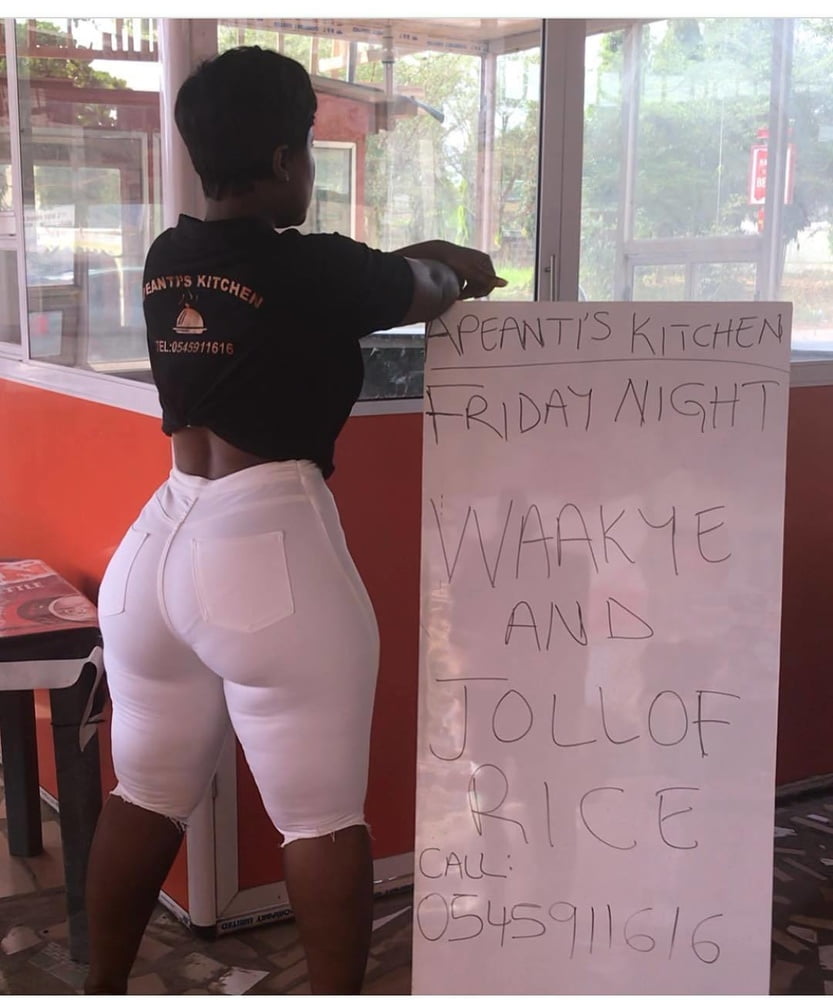 PEANTI'S KITCHEN
TEL:0545911616
APEANTI'S KITCHEN
FRIDAY NIGHT
WAAKYE
AND
JOLLOF
RICE
CALL:
0545911616